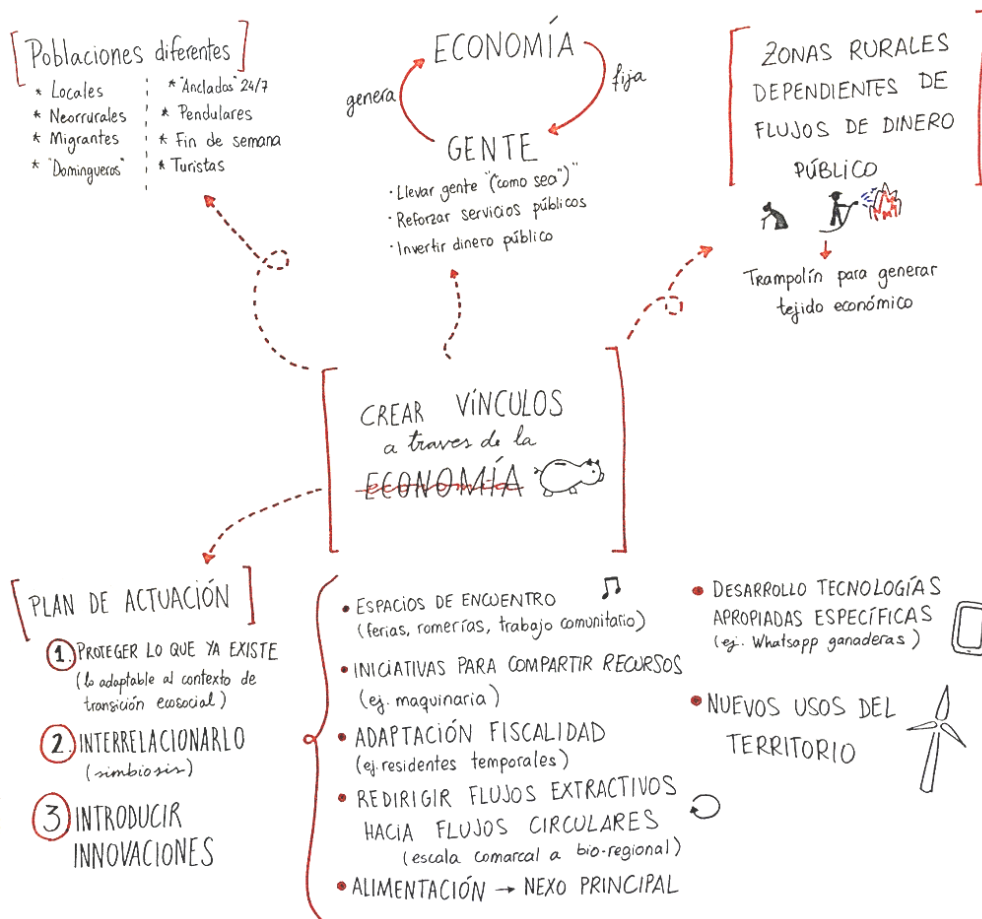 Poblaciones diferentes
* Locales
* Neorrurales
* Migrantes
* "Domingueros"
* "Anclados" 24/7
* Pendulares
* Fin de semana
* Turistas
ECONOMÍA
genera
fija
GENTE
· Llevar gente "(como sea")"
· Reforzar servicios públicos
· Invertir dinero público
ZONAS RURALES
DEPENDIENTES DE
FLUJOS DE DINERO
PÚBLICO
Trampolín para generar
tejido económico
CREAR VÍNCULOS
a traves de la
ECONOMÍA
PLAN DE ACTUACIÓN
1. PROTEGER LO QUE YA EXISTE
(lo adaptable al contexto de
transición ecosocial)
2. INTERRELACIONARLO
(simbiosis)
3 INTRODUCIR
INNOVACIONES
• ESPACIOS DE ENCUENTRO
(ferias, romerías, trabajo comunitario)
• INICIATIVAS PARA COMPARTIR RECURSOS
(ej. maquinaria)
• ADAPTACIÓN FISCALIDAD
(ej. residentes temporales)
• REDIRIGIR FLUJOS EXTRACTIVOS
HACIA FLUJOS CIRCULARES
(escala comarcal a bio-regional)
• ALIMENTACIÓN → NEXO PRINCIPAL
• DESARROLLO TECNOLOGÍAS
APROPIADAS ESPECÍFICAS
(ej. Whatsapp ganaderas)
• NUEVOS USOS DEL
TERRITORIO